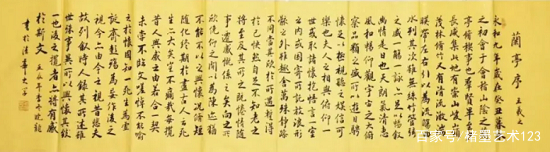 蘭亭序 王羲之
永和九年歲在癸丑暮春
之初會于會稽山陰之蘭
亭修禊事也羣賢畢至少
長咸集此地有崇山峻領
茂林脩竹又有清流激湍
映帶左右引以為流觴曲
水列坐其次雖無絲竹管弦
之盛一觴一詠亦足以暢叙
幽情是日也天朗氣清惠
風和暢仰觀宇宙之大俯
察品類之盛所以遊目騁
懷足以極視聽之娛信可
樂也夫人之相與俯仰一
世或取諸懷抱悟言一室
之內或因寄所託放浪形
骸之外雖趣舍萬殊靜躁
不同當其欣於所遇暫得
於己快然自足不知老之
將至及其所之既倦情随
事遷感慨係之矣向之所
欣俛仰之間以為陳迹猶
不能不以之興懷況脩短
随化終期於盡古人云死
生亦大矣豈不痛哉每攬
昔人興感之由若合一契
未嘗不臨文嗟悼不能喻
之於懷固知一死生為虛
誕齊彭殤為妄作後之
視今亦由今之視昔悲夫
故列叙時人錄其所述雖
世殊事異所以興懷其致
一也後之攬者亦將有感
於斯文
百家号/精墨艺术123